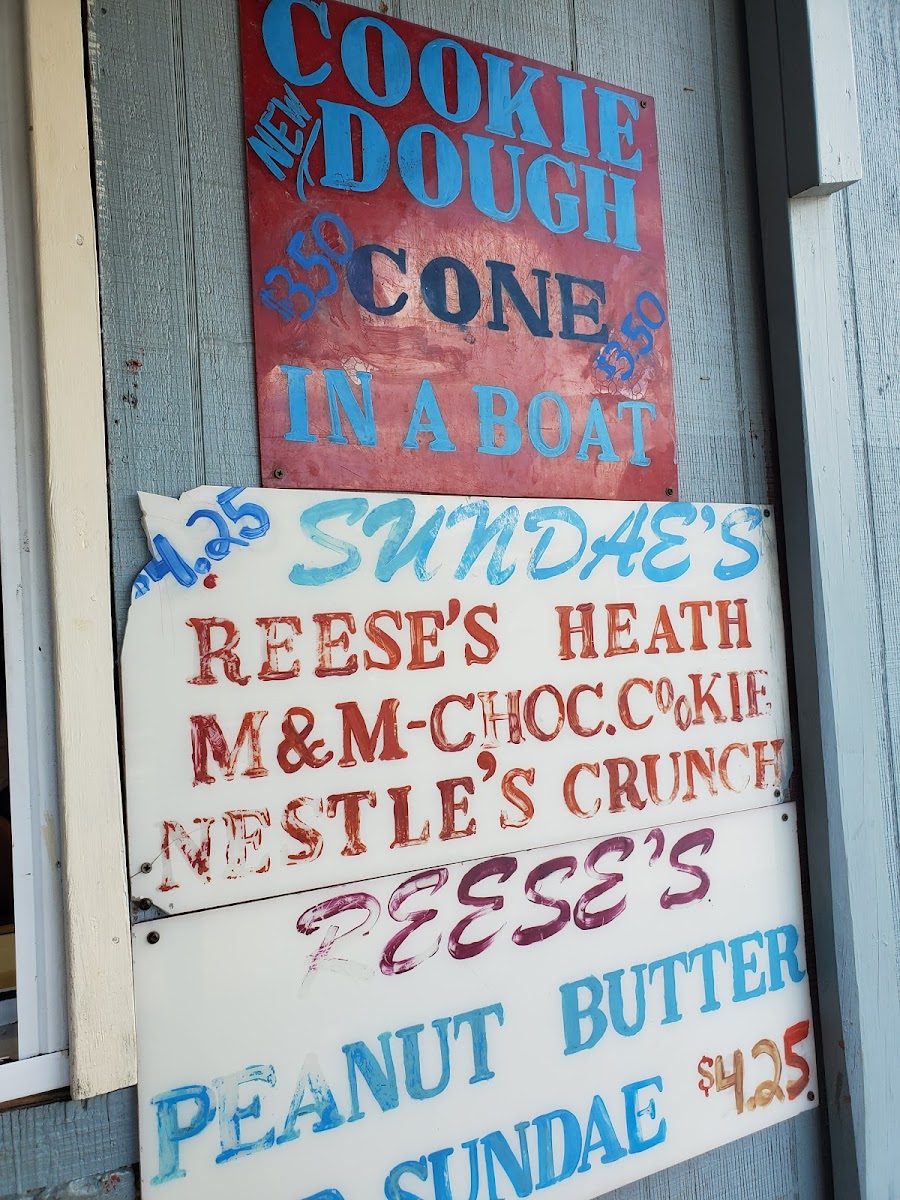 COOKIE
NEW DOUGH
$3.50 CONE $3.50
IN A BOAT
$4.25 SUNDAE'S
REESE'S HEATH
M&M-CHOC.COOKIE
NESTLE'S CRUNCH
REESE'S
PEANUT BUTTER
SUNDAE $4.25